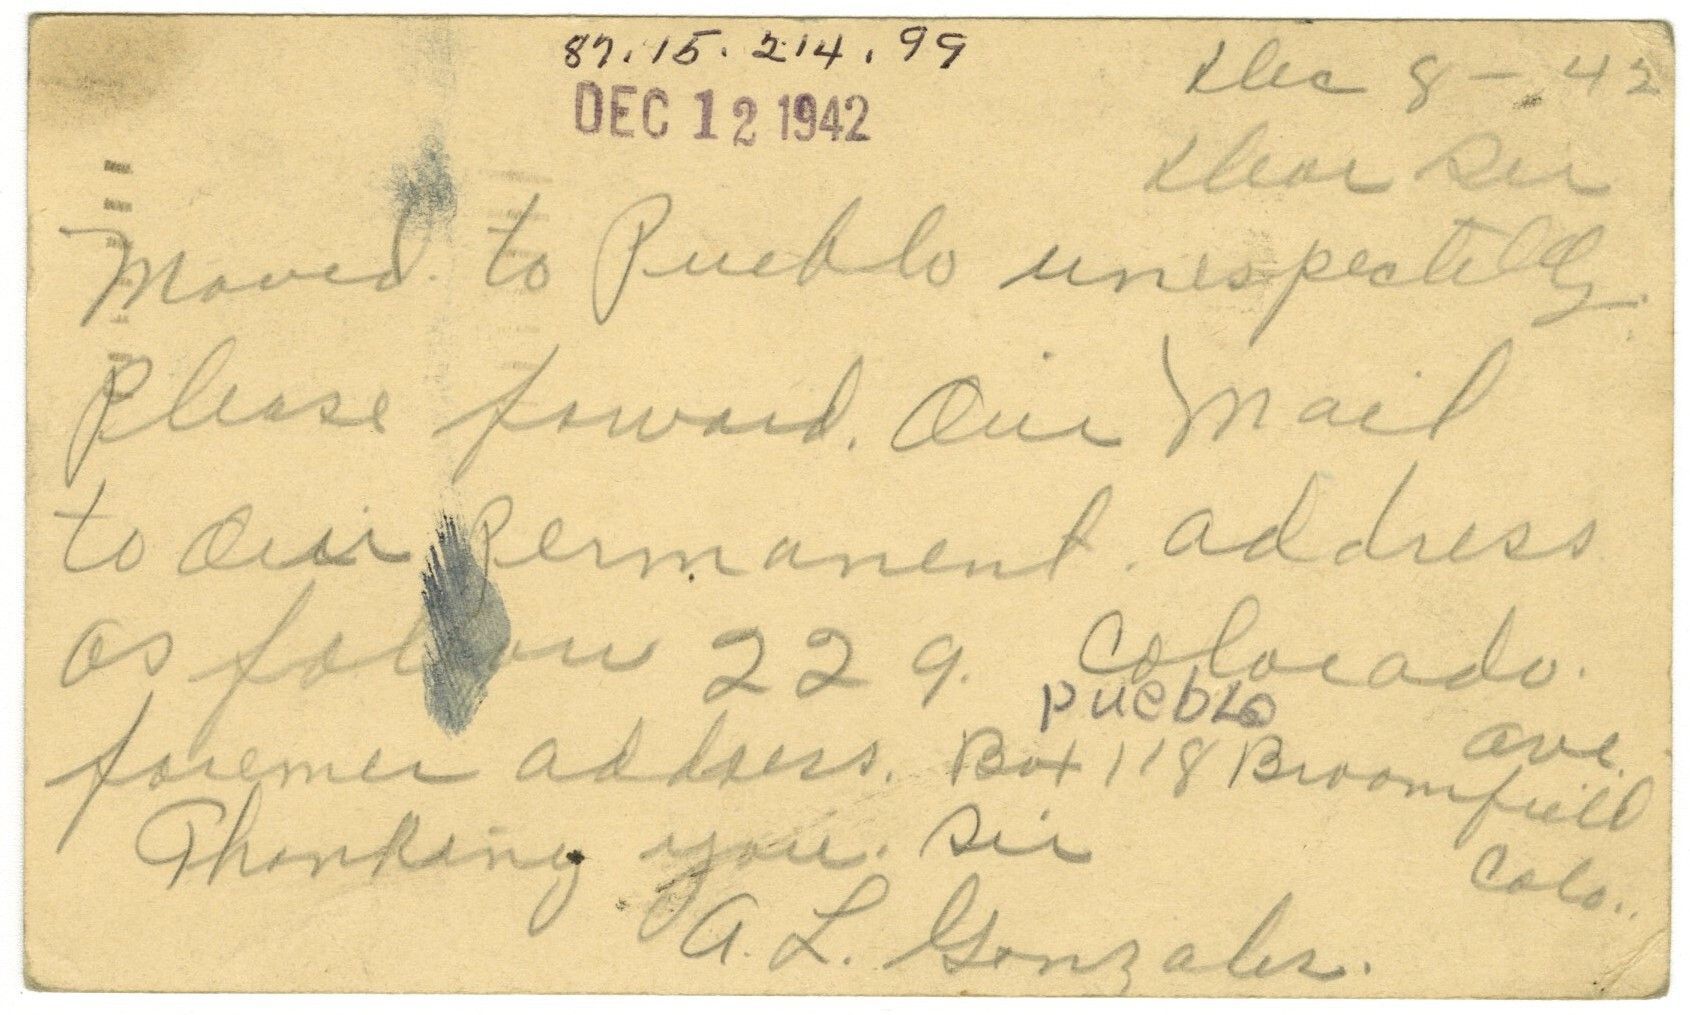 87.15.214.99
DEC 12 1942
Dec 8 - 42
Dear Sir
Moved to Pueblo unespectelly.
Please foward. Our Mail
to Our Permanent address
as follow 229. Colorado.
Pueblo ave.
foremer address. Box 118 Broomfield
Colo..
Thanking you. Sir
A. L. Gonzales.